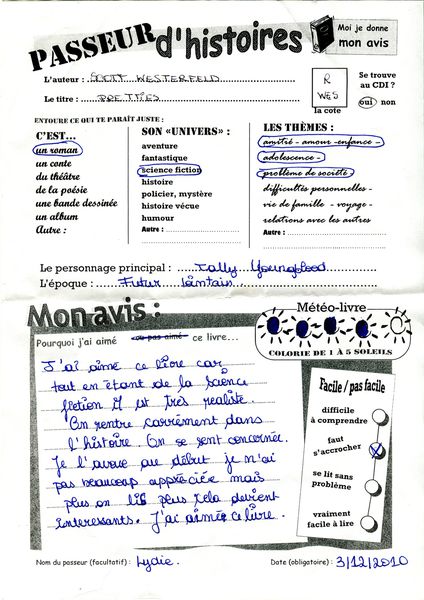 PASSEUR d'histoires
Moi je donne
mon avis
L'auteur : SCOTT WESTERFELD
Le titre : PRETTIES
R
WES
la cote
Se trouve
au CDI ?
oui non
ENTOURE CE QUI TE PARAÎT JUSTE :
C'EST...
un roman
un conte
du théâtre
de la poésie
une bande dessinée
un album
Autre :
SON «UNIVERS» :
aventure
fantastique
science fiction
histoire
policier, mystère
histoire vécue
humour
Autre :
LES THÈMES :
amitié - amour - enfance -
adolescence -
problème de société
difficultés personnelles -
vie de famille - voyage -
relations avec les autres
Autre :
Le personnage principal : Tally Youngblood
L'époque : Futur lointain
Mon avis :
Pourquoi j'ai aimé ou pas aimé ce livre...
J'ai aimé ce livre car
tout en étant de la science
fiction il est très realiste.
On rentre carrément dans
l'histoire. On se sent concernée.
Je l'avoue au début je n'ai
pas beaucoup appréciée mais
plus on lis plus cela devient
interessants. J'ai aimée ce livre.
Météo-livre
COLORIE DE 1 À 5 SOLEILS
Facile / pas facile
difficile
à comprendre
faut
s'accrocher
se lit sans
problème
vraiment
facile à lire
Nom du passeur (facultatif) : Lydie.
Date (obligatoire) : 3/12/2010